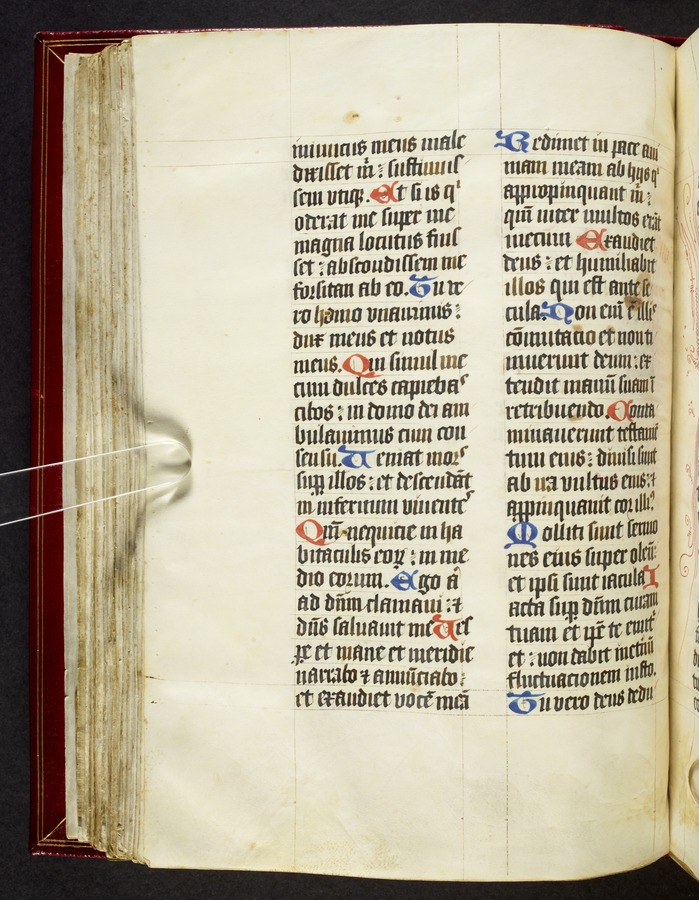 inimicus meus male
dixisset m̄ : sustinuis
sem vtiq̄. Et si is qͥ
oderat me super me
magna locutus fuis
set : abscondissem me
forsitan ab eo. Tu ve
ro homo vnanimis :
dux meus et notus
meus. Qui simul me
cum dulces capiebas
cibos : in domo dei am
bulauimus cum con
sensu. Veniat mors
sup̄ illos : et descendāt
in infernum viuentes
Qm̄ nequicie in ha
bitaculis eoꝝ : in me
dio eorum. Ego aū
ad dn̄m clamaui : ⁊
dn̄s saluauit me Ves
pe et mane et meridie
narrabo ⁊ annūciabo :
et exaudiet vocē meā
Redimet in pace ani
mam meam ab hijs qͥ
appropinquant m̄ :
qm̄ inter multos erāt
mecum Exaudiet
deus : et humiliabit
illos qui est ante se
cula. Non eni ē illis
cōmutacio et non ti
muerunt deum : ex
tendit manū suam ī
retribuendo. Conta
minauerunt testamē
tum eius : diuisi sunt
ab ira vultus eius : ⁊
appinquauit cor illiꝰ
Molliti sunt sermo
nes eius super oleū :
et ipsi sunt iacula I
acta sup̄ dn̄m curam
tuam et ip̄e te enut᷑
et : non dabit in etnū
fluctuacionem iusto.
Tu vero deus dedu